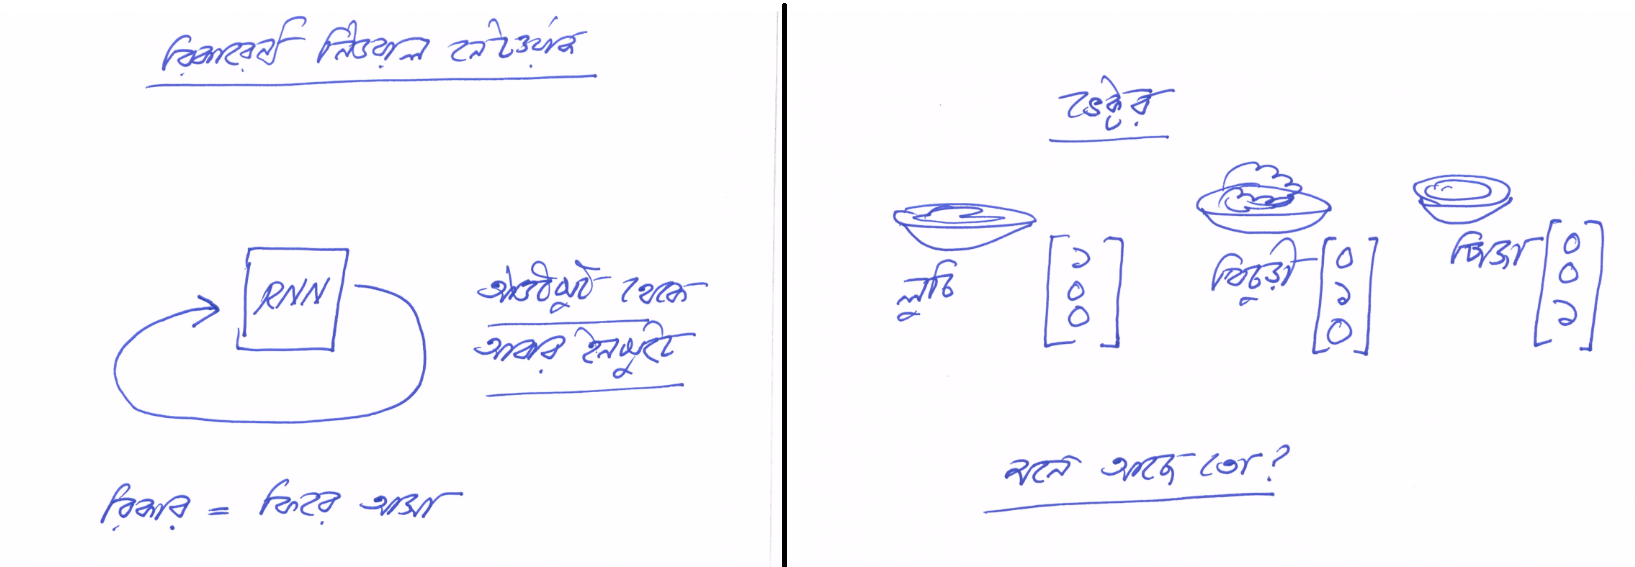 রিকারেন্ট নিওরাল নেটওয়ার্ক
RNN
আউটপুট থেকে
আবার ইনপুট
রিকার = ফিরে আসা
ভেক্টর
লুচি
১
০
০
খিচুড়ী
০
১
০
পিজা
০
০
১
মনে আছে তো?